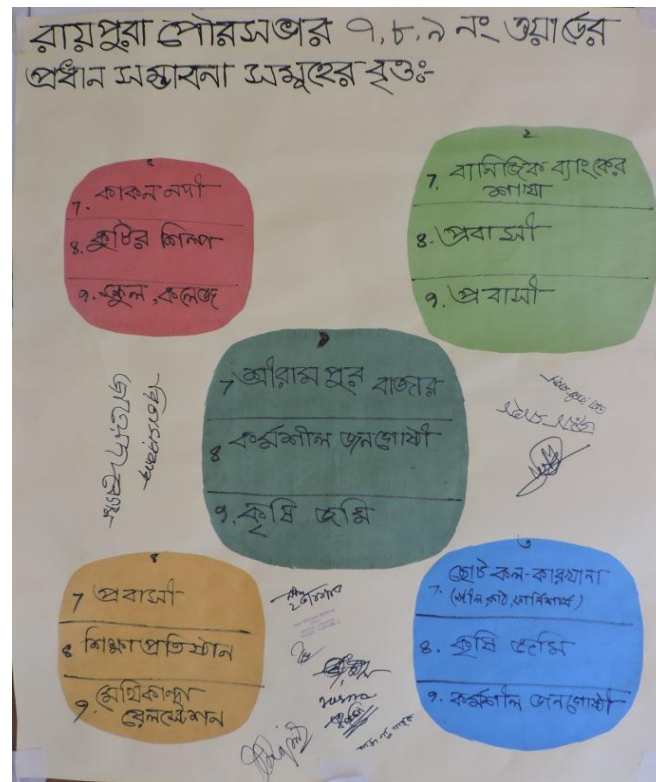 রায়পুরা পৌরসভার ৭,৮,৯ নং ওয়ার্ডের
প্রধান সম্ভাবনা সমূহের বৃত্তঃ-
৫
7. কাকন নদী
8. কুটির শিল্প
9. স্কুল, কলেজ
২
7. বানিজিক ব্যাংকের
শাখা
8. প্রবাসী
9. প্রবাসী
১
7 শ্রীরামপুর বাজার
8 কর্মশীল জনগোষ্ঠী
9. কৃষি জমি
৪
7 প্রবাসী
8 শিক্ষা প্রতিষ্ঠান
9. মেথিকান্দা
রেলস্টেশন
৩
7. ছোট কল-কারখানা
8. কৃষি জমি
9. কর্মশীল জনগোষ্ঠী